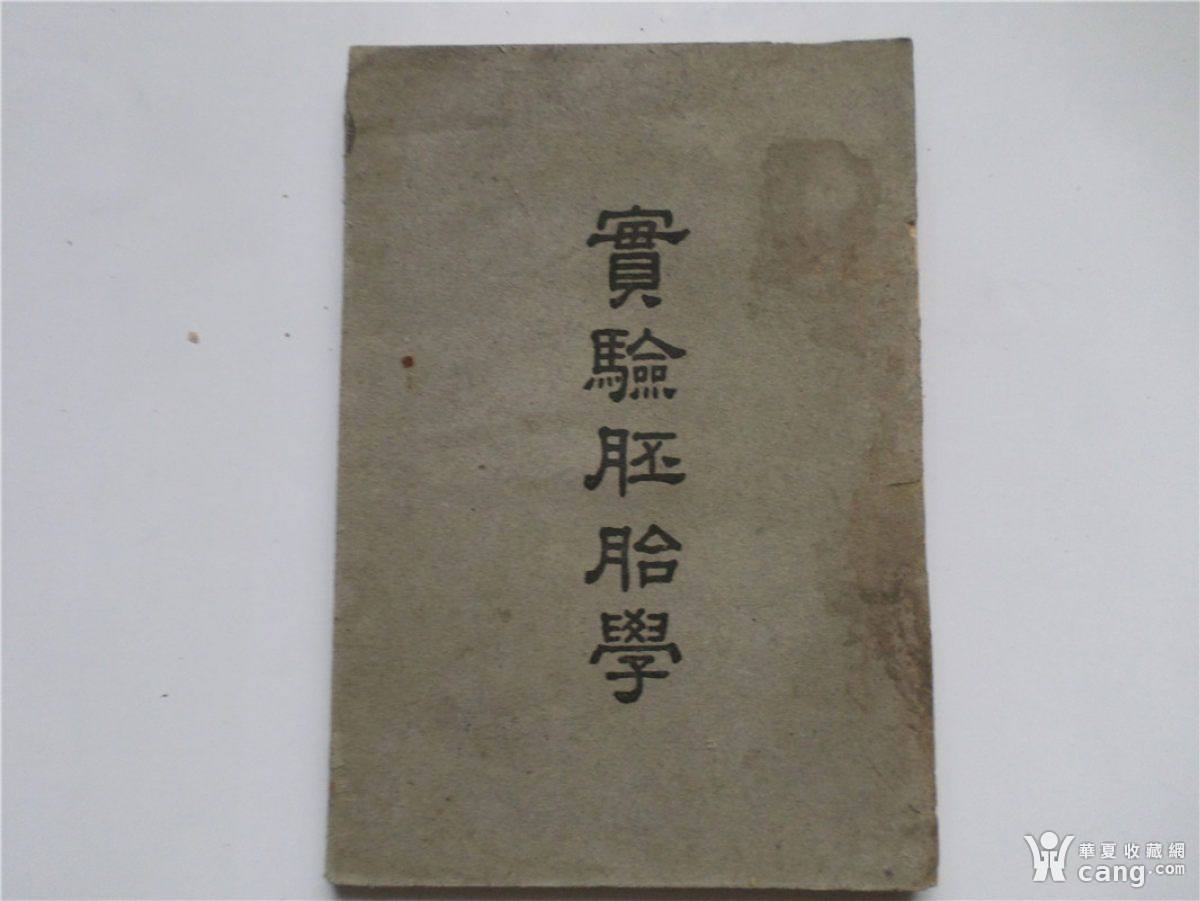 實驗胚胎學
華夏收藏網
cang.com